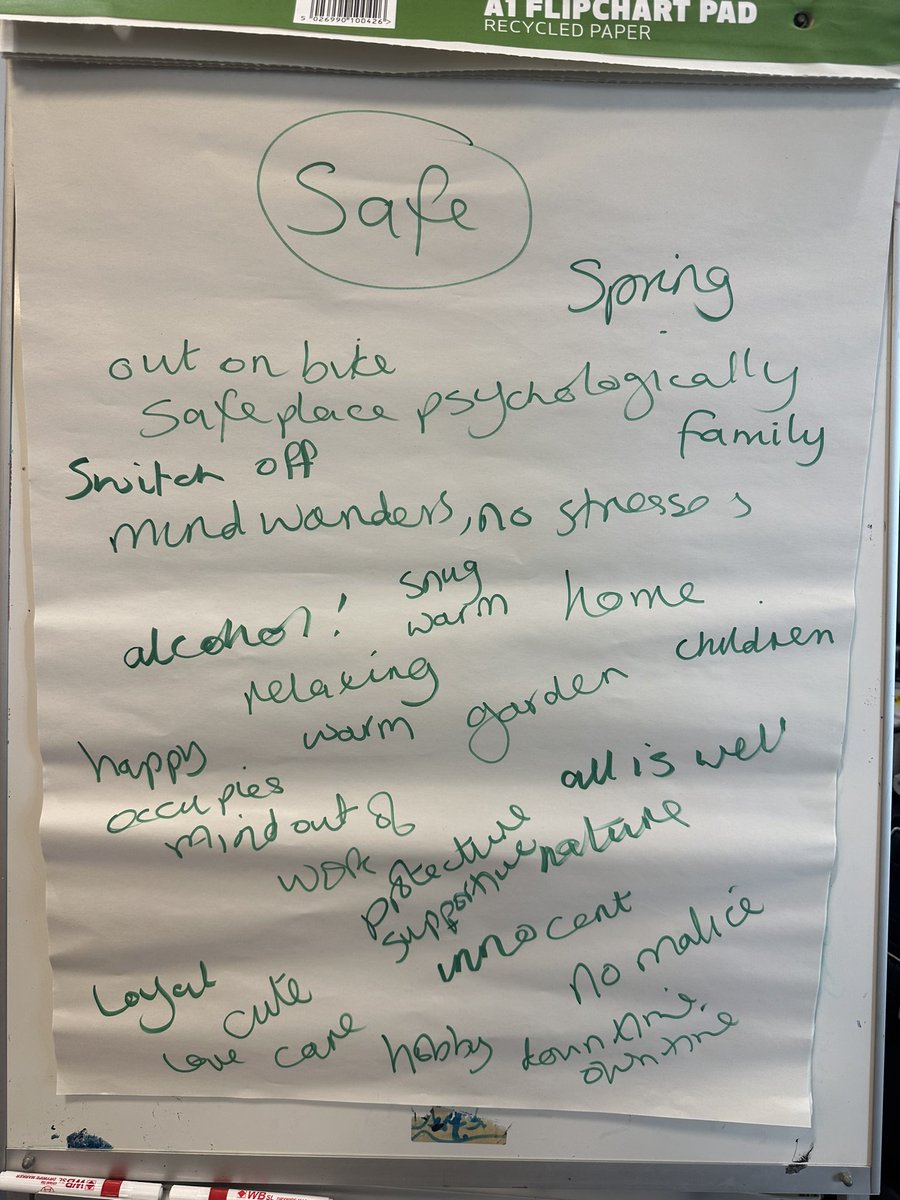 5 026990 100426
A1 FLIPCHART PAD
RECYCLED PAPER
Safe
Spring
out on bike
Safe place psychologically
family
Switch off
mind wanders, no stresses
alcohol!
snug
warm
home
relaxing
children
happy
warm
garden
occupies
mind out of
work
all is well
protective
supportive
nature
innocent
no malice
Loyal
cute
Love care
hobby
down time,
own time